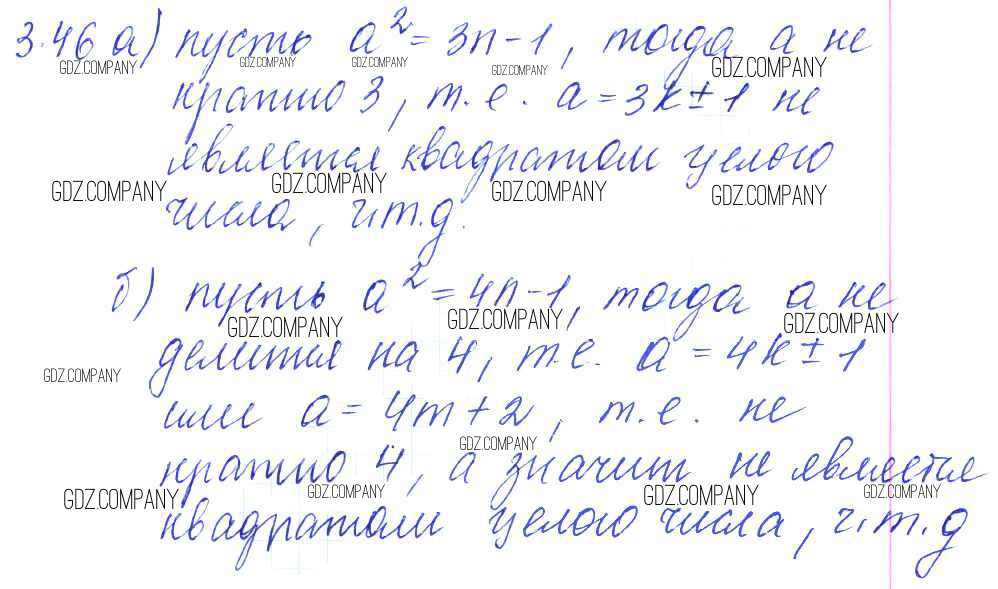 3.46 а) пусть a² = 3n - 1, тогда a не
GDZ.COMPANY GDZ.COMPANY GDZ.COMPANY GDZ.COMPANY GDZ.COMPANY
кратно 3, т.е. a = 3k ± 1 не
является квадратом целого
GDZ.COMPANY GDZ.COMPANY GDZ.COMPANY GDZ.COMPANY
числа, ч.т.д.
б) пусть a² = 4n - 1, тогда a не
GDZ.COMPANY GDZ.COMPANY GDZ.COMPANY
делится на 4, т.е. a = 4k ± 1
GDZ.COMPANY
или a = 4m + 2, т.е. не
GDZ.COMPANY
кратно 4, а значит не является
GDZ.COMPANY GDZ.COMPANY GDZ.COMPANY GDZ.COMPANY
квадратом целого числа, ч.т.д